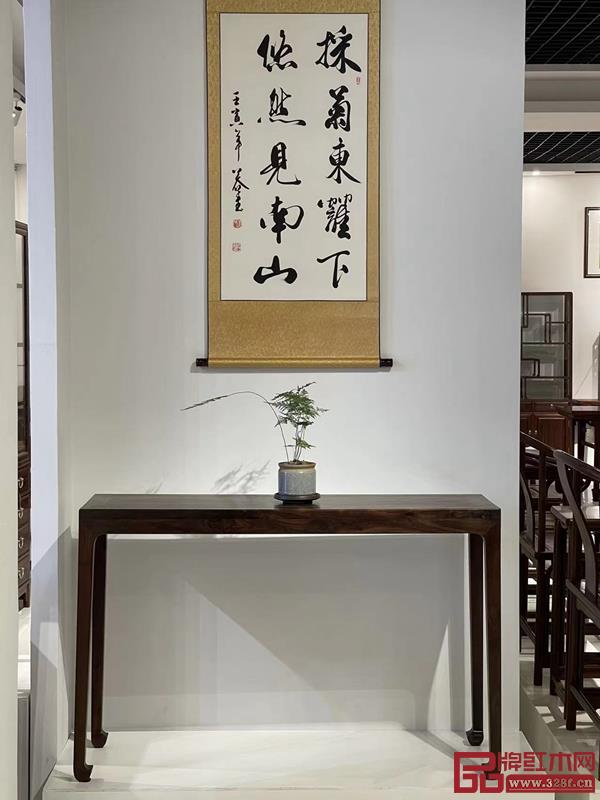 採菊東籬下
悠然見南山
壬寅年
品牌红木网
www.328f.cn